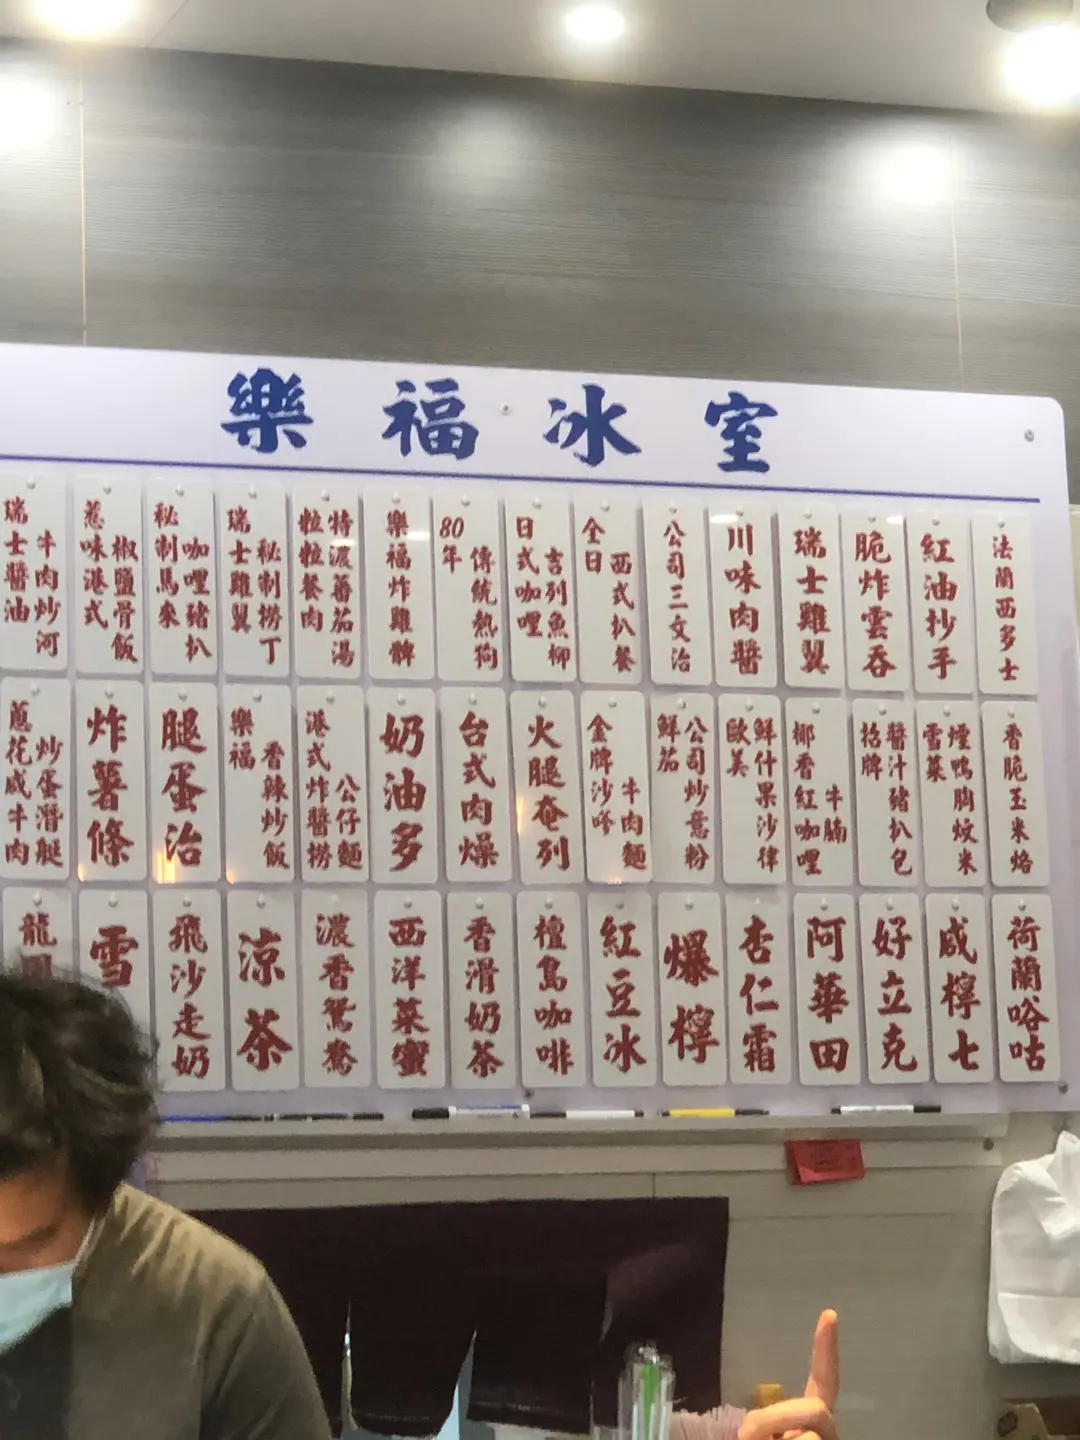 樂福冰室
法蘭西多士
紅油抄手
脆炸雲吞
瑞士雞翼
川味肉醬
公司三文治
全日
西式扒餐
日式咖哩
吉列魚柳
80年
傳統熱狗
樂福炸雞髀
特濃蕃茄湯
粒粒餐肉
瑞士雞翼
秘制撈丁
秘制馬來
咖哩豬扒
惹味港式
椒鹽骨飯
瑞士醬油
牛肉炒河
香脆玉米烙
雪菜
煙鴨胸炆米
招牌
醬汁豬扒包
椰香紅咖哩
牛腩
歐美
鮮什果沙律
鮮茄
公司炒意粉
金牌沙嗲
牛肉麵
火腿奄列
台式肉燥
奶油多
港式炸醬撈
公仔麵
樂福
香辣炒飯
腿蛋治
炸薯條
蔥花咸牛肉
炒蛋潛艇
荷蘭唂咕
咸檸七
好立克
阿華田
杏仁霜
爆檸
紅豆冰
檀島咖啡
香滑奶茶
西洋菜蜜
濃香鴛鴦
涼茶
飛沙走奶
雪
龍